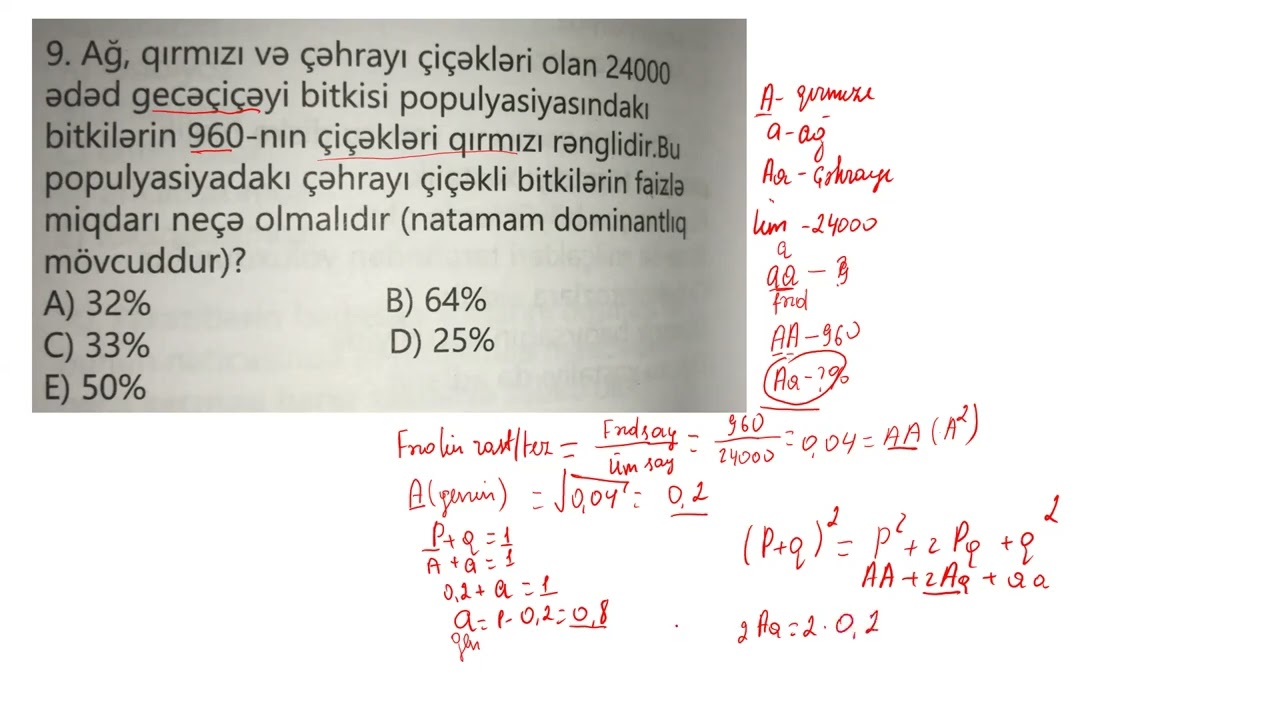 9. Ağ, qırmızı və çəhrayı çiçəkləri olan 24000
ədəd gecəçiçəyi bitkisi populyasiyasındakı
bitkilərin 960-nın çiçəkləri qırmızı rənglidir.Bu
populyasiyadakı çəhrayı çiçəkli bitkilərin faizlə
miqdarı neçə olmalıdır (natamam dominantlıq
mövcuddur)?
A) 32% B) 64%
C) 33% D) 25%
E) 50%
A- qırmızı
a- ağ
Aa - çəhrayı
Üm - 24000
a
aa - ?
fərd
AA - 960
Aa - ?%
Fərdin rast/tez = Fərdsay / üm say = 960 / 24000 = 0,04 = AA (A²)
A (genin) = √0,04 = 0,2
P+q = 1
A + a = 1
0,2 + a = 1
a = 1 - 0,2 = 0,8
gen
(P+q)² = P² + 2Pq + q²
AA + 2Aa + aa
2Aa = 2 · 0,2